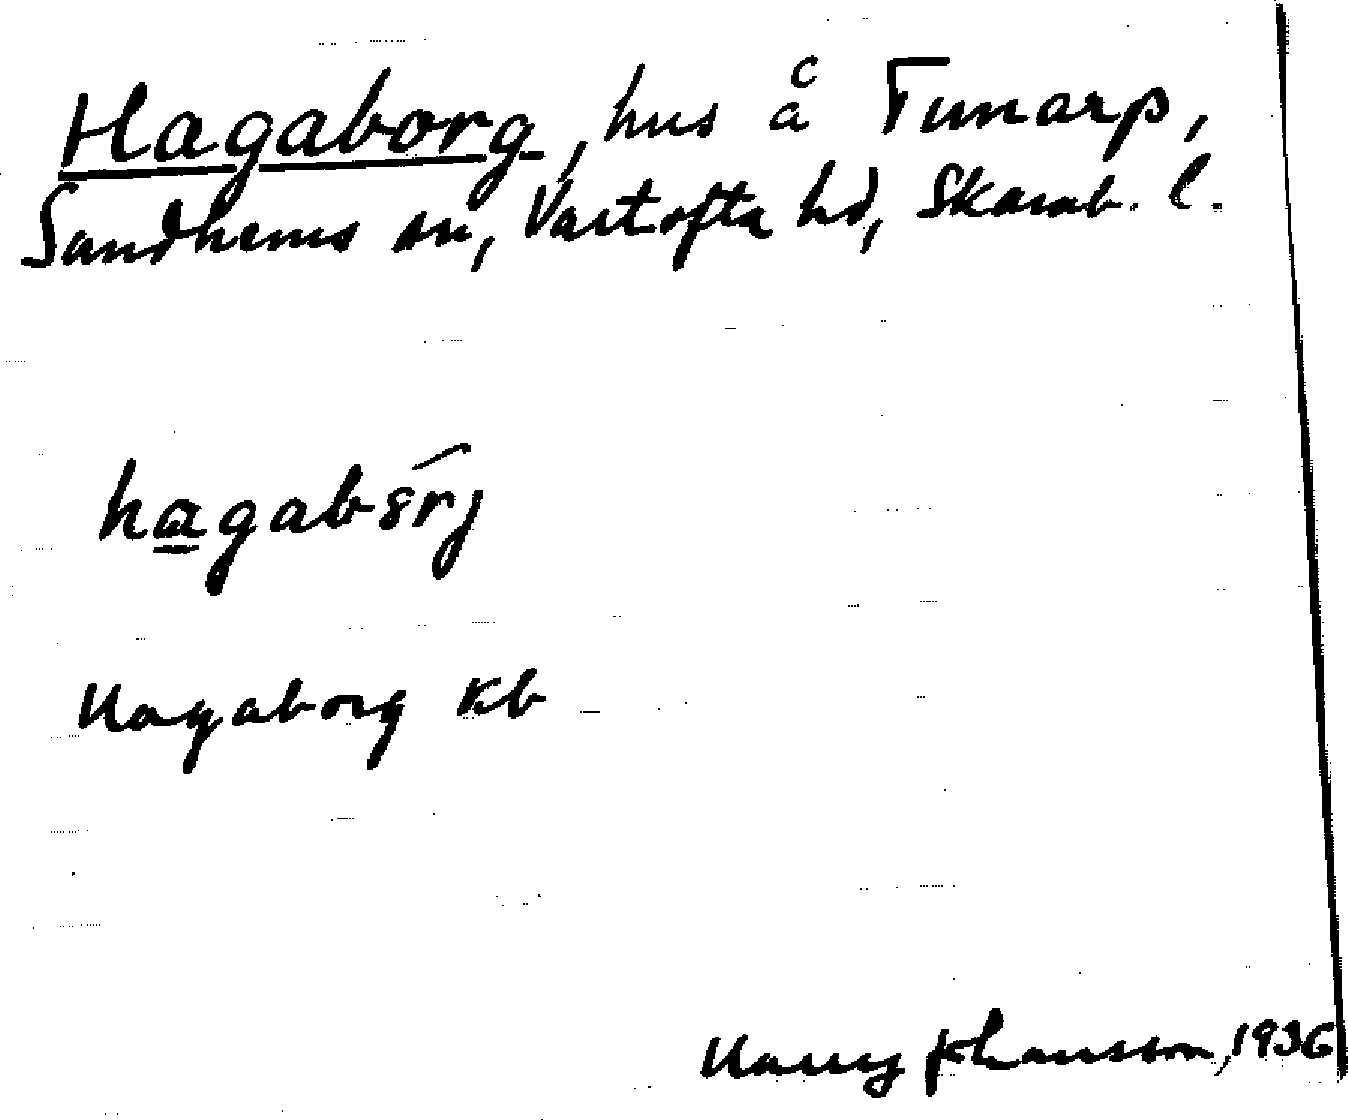 Hagaborg, hus å Tunarp,
Sandhems sn, Vartofta hd, Skarab. l.
hagabo̊rj
Hagaborg kb
Harry Johansson, 1936